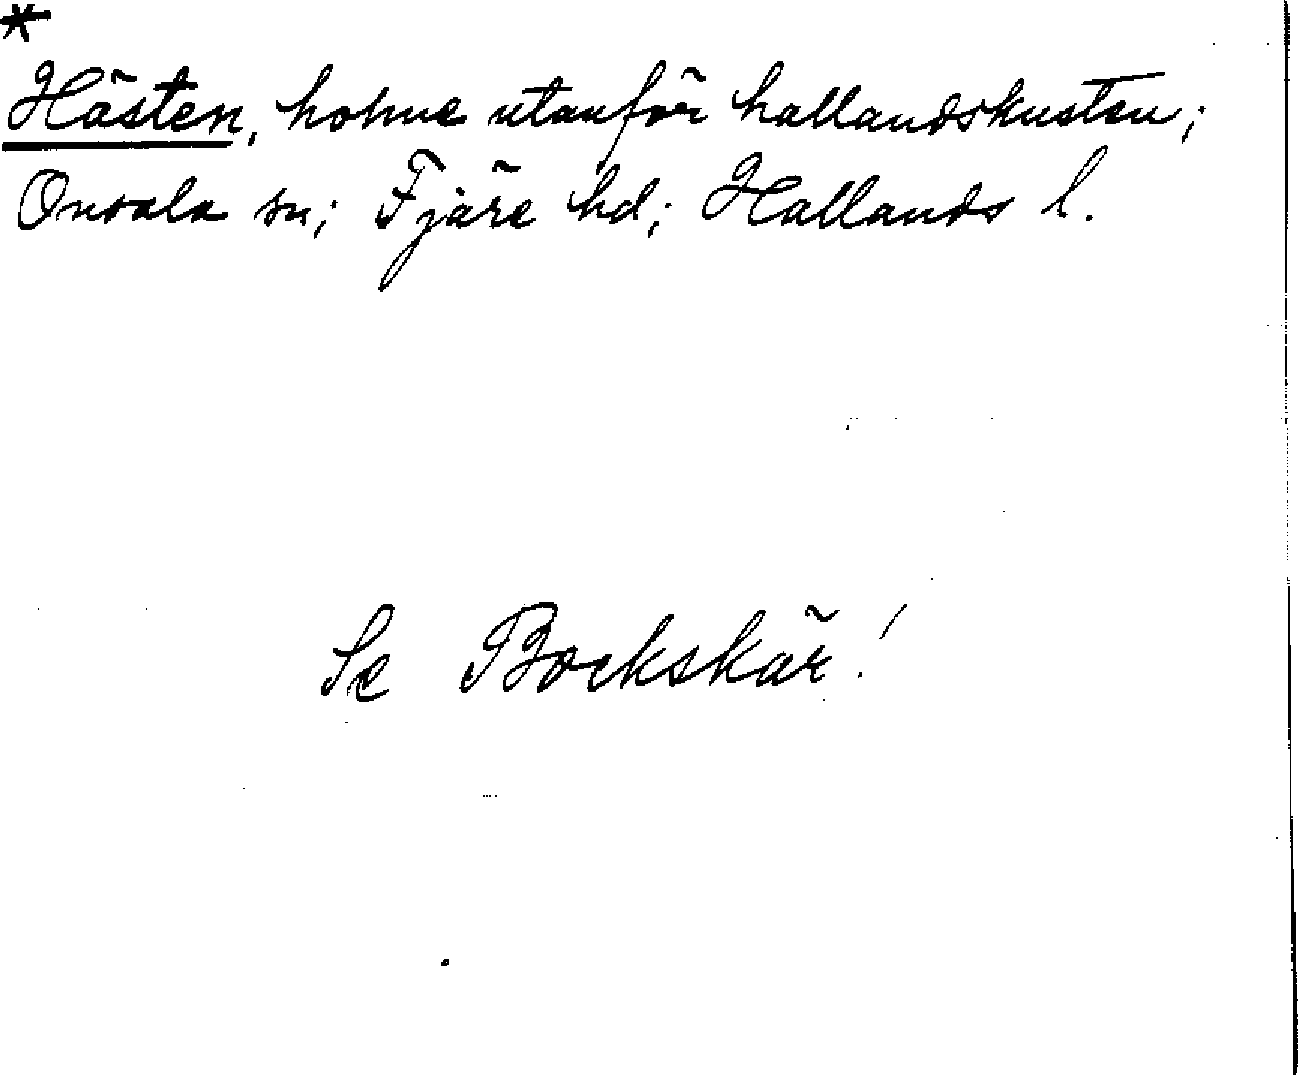 *
Hästen, holme utanför hallandskusten;
Onsala sn; Fjäre hd; Hallands l.
Se Bockskär!